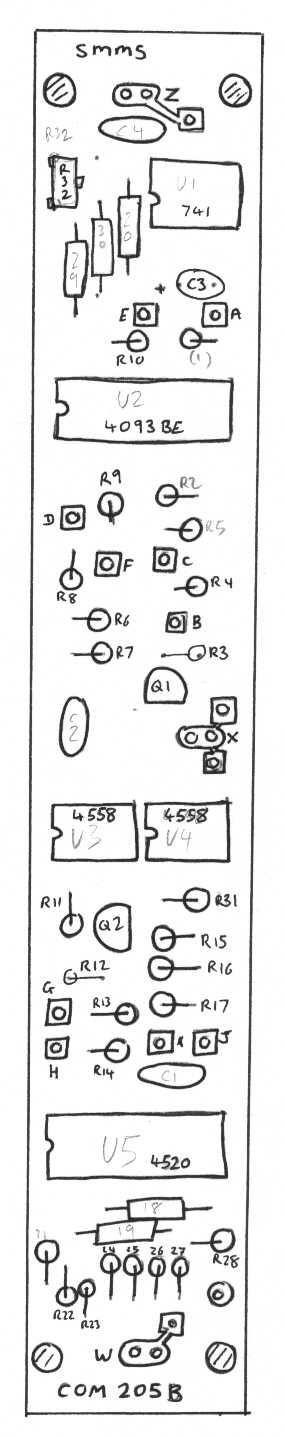 SMMS
Z
C4
R32
R32
U1
741
20
30
29
C3
+
E
A
R10
(1)
U2
4093BE
R9
R2
D
R5
F
C
R8
R4
R6
B
R7
R3
Q1
C2
X
4558
4558
U3
U4
R11
R31
Q2
R15
R12
R16
G
R13
R17
J
H
R14
C1
U5
4520
18
19
21
24
25
26
27
R28
R22
R23
W
COM 205B